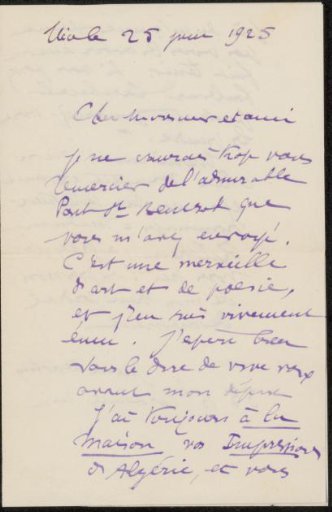 25 juin 1925
Cher Monsieur et ami
Je ne saurais trop vous
remercier de l'admirable
Pont St Benezet que
vous m'avez envoyé.
C'est une merveille
d'art et de poésie,
et j'en suis vivement
ému. J'espère bien
vous le dire de vive voix
avant mon départ
J'ai toujours à la
maison vos Impressions
d'Algérie, et vous